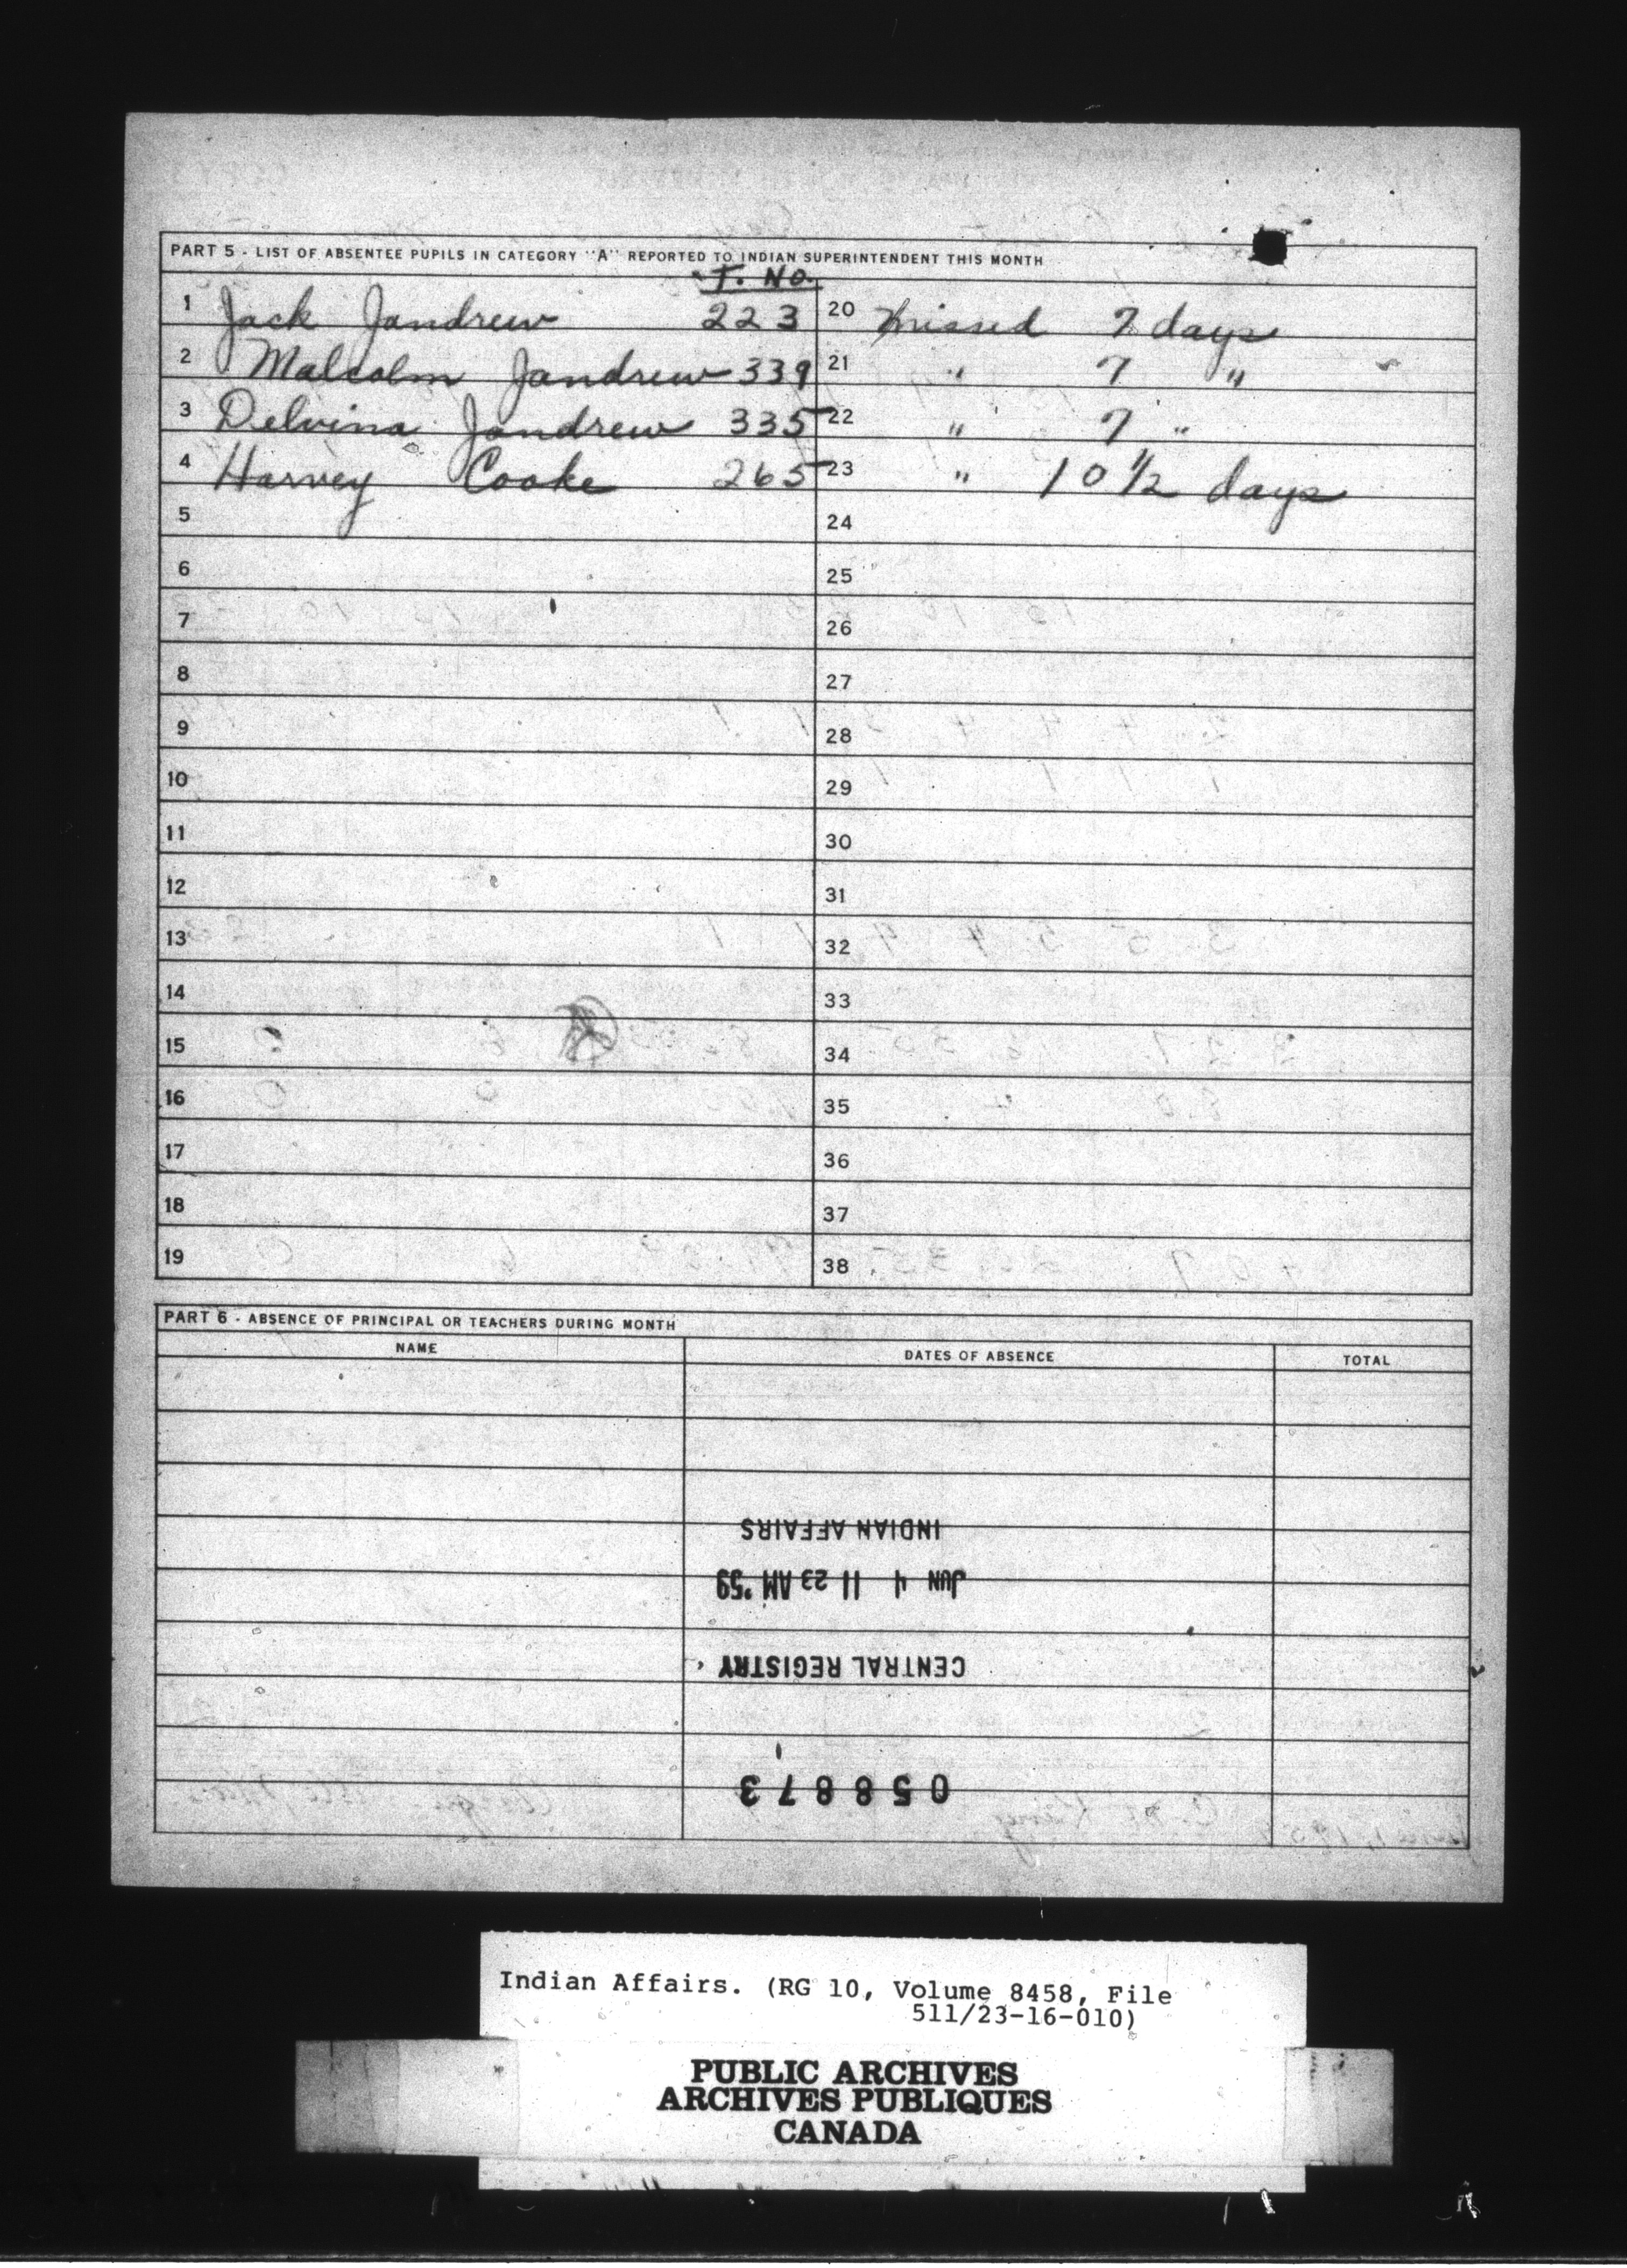 PART 5 - LIST OF ABSENTEE PUPILS IN CATEGORY "A" REPORTED TO INDIAN SUPERINTENDENT THIS MONTH
T. No.
1 Jack Jandrew 223 20 missed 7 days
2 Malcolm Jandrew 339 21 " 7 "
3 Delvina Jandrew 335 22 " 7 "
4 Harvey Cooke 265 23 " 10 1/2 days
5 24
6 25
7 26
8 27
9 28
10 29
11 30
12 31
13 32
14 33
15 34
16 35
17 36
18 37
19 38
PART 6 - ABSENCE OF PRINCIPAL OR TEACHERS DURING MONTH
NAME DATES OF ABSENCE TOTAL
INDIAN AFFAIRS
JUN 4 11 23 AM '59
CENTRAL REGISTRY
058873
Indian Affairs. (RG 10, Volume 8458, File
511/23-16-010)
PUBLIC ARCHIVES
ARCHIVES PUBLIQUES
CANADA